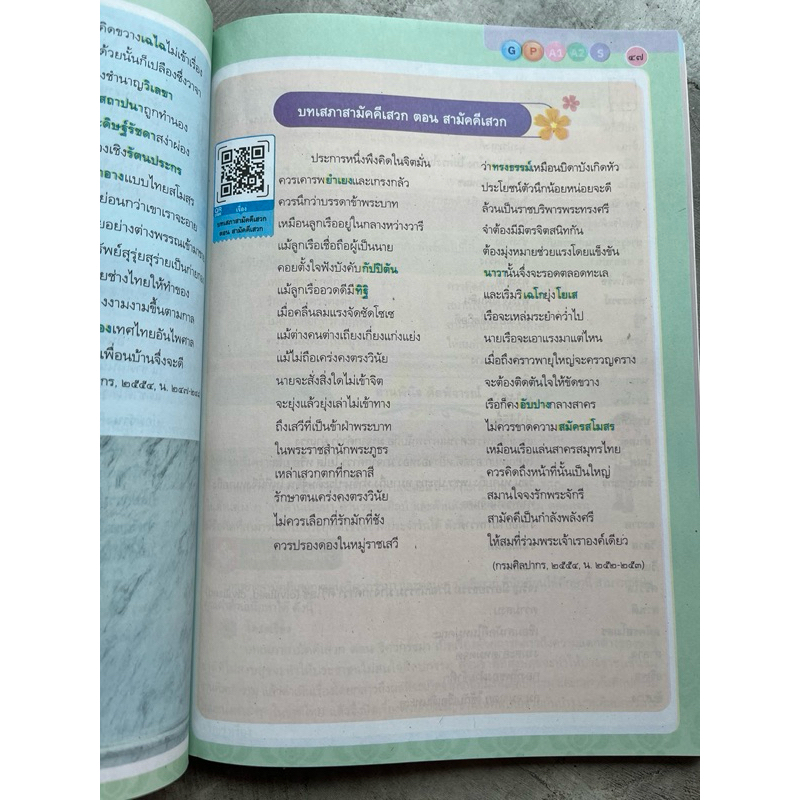 คิดขวางเฉไฉไม่เข้าเรื่อง
ด้วยนั้นก็เปลืองซึ่งวาจา
งชำนาญวิเลขา
สถาปนาถูกทำนอง
ะดิษฐ์รัชดาสง่าผ่อง
องเชิงรัตนประกร
ำอางแบบไทยสโมสร
ย่อนกว่าเขาเราจะอาย
วยอย่างต่างพรรณเข้ามา
ัพย์สุรุ่ยสุร่ายเป็นก่าย
ยช่างไทยให้ทำของ
งงามงามขึ้นตามกาล
องเทศไทยอันไพศาล
เพื่อนบ้านจึ่งจะดี
ปากร, ๒๕๕๔, น. ๒๔๗-๒๔
G P A1 A2 S
๔๗
บทเสภาสามัคคีเสวก ตอน สามัคคีเสวก
เรื่อง
บทเสภาสามัคคีเสวก
ตอน สามัคคีเสวก
ประการหนึ่งพึงคิดในจิตมั่น ว่าทรงธรรม์เหมือนบิดาบังเกิดหัว
ควรเคารพยำเยงและเกรงกลัว ประโยชน์ตัวนึกน้อยหน่อยจะดี
ควรนึกว่าบรรดาข้าพระบาท ล้วนเป็นราชบริพารพระทรงศรี
เหมือนลูกเรืออยู่ในกลางหว่างวารี จำต้องมีมิตรจิตสนิทกัน
แม้ลูกเรือเชื่อถือผู้เป็นนาย ต้องมุ่งหมายช่วยแรงโดยแข็งขัน
คอยตั้งใจฟังบังคับกัปปิตัน นาวานั้นจึ่งจะรอดตลอดทะเล
แม้ลูกเรืออวดดีมีทิฐิ และเริ่มริเฉโกยุ่งโยเส
เมื่อคลื่นลมแรงจัดซัดโซเซ เรือจะเหล่มระยำคว่ำไป
แม้ต่างคนต่างเถียงเกี่ยงแก่งแย่ง นายเรือจะเอาแรงมาแต่ไหน
แม้ไม่ถือเคร่งคงตรงวินัย เมื่อถึงคราวพายุใหญ่จะครวญคราง
นายจะสั่งสิ่งใดไม่เข้าจิต จะต้องติดตันใจให้ขัดขวาง
จะยุ่งแล้วยุ่งเล่าไม่เข้าทาง เรือก็คงอับปางกลางสาคร
ถึงเสวีที่เป็นข้าฝ่าพระบาท ไม่ควรขาดความสมัครสโมสร
ในพระราชสำนักพระภูธร เหมือนเรือแล่นสาครสมุทรไทย
เหล่าเสวกตกที่กะลาสี ควรคิดถึงหน้าที่นั้นเป็นใหญ่
รักษาตนเคร่งคงตรงวินัย สมานใจจงรักพระจักรี
ไม่ควรเลือกที่รักมักที่ชัง สามัคคีเป็นกำลังพลังศรี
ควรปรองดองในหมู่ราชเสวี ให้สมที่ร่วมพระเจ้าเราองค์เดียว
(กรมศิลปากร, ๒๕๕๔, น. ๒๕๒-๒๕๓)